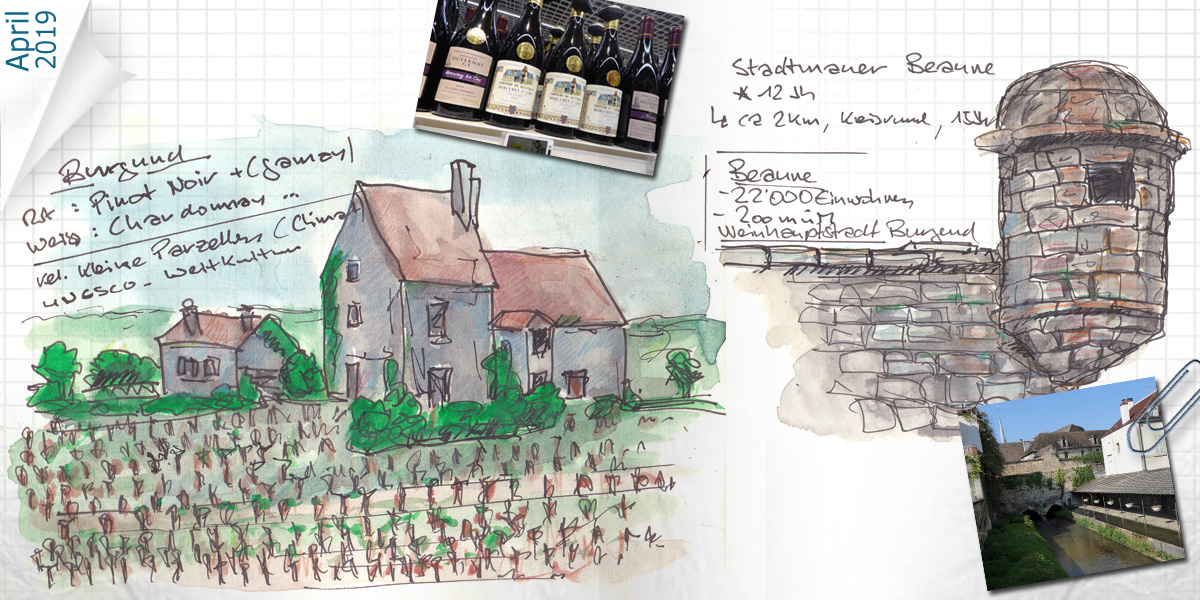 April
2019
Burgund
Rot : Pinot Noir + (gamay)
Weiss : Chardonnay ...
rel. kleine Parzellen (Climats
UNESCO - Weltkultur
DUVERNAY
MERCUREY
MERCUREY
Stadtmauer Beaune
* 12 Jh
↳ ca 2km, kreisrund, 15Jh
Beaune
- 22'000 Einwohner
- 200 müM
Weinhauptstadt Burgund